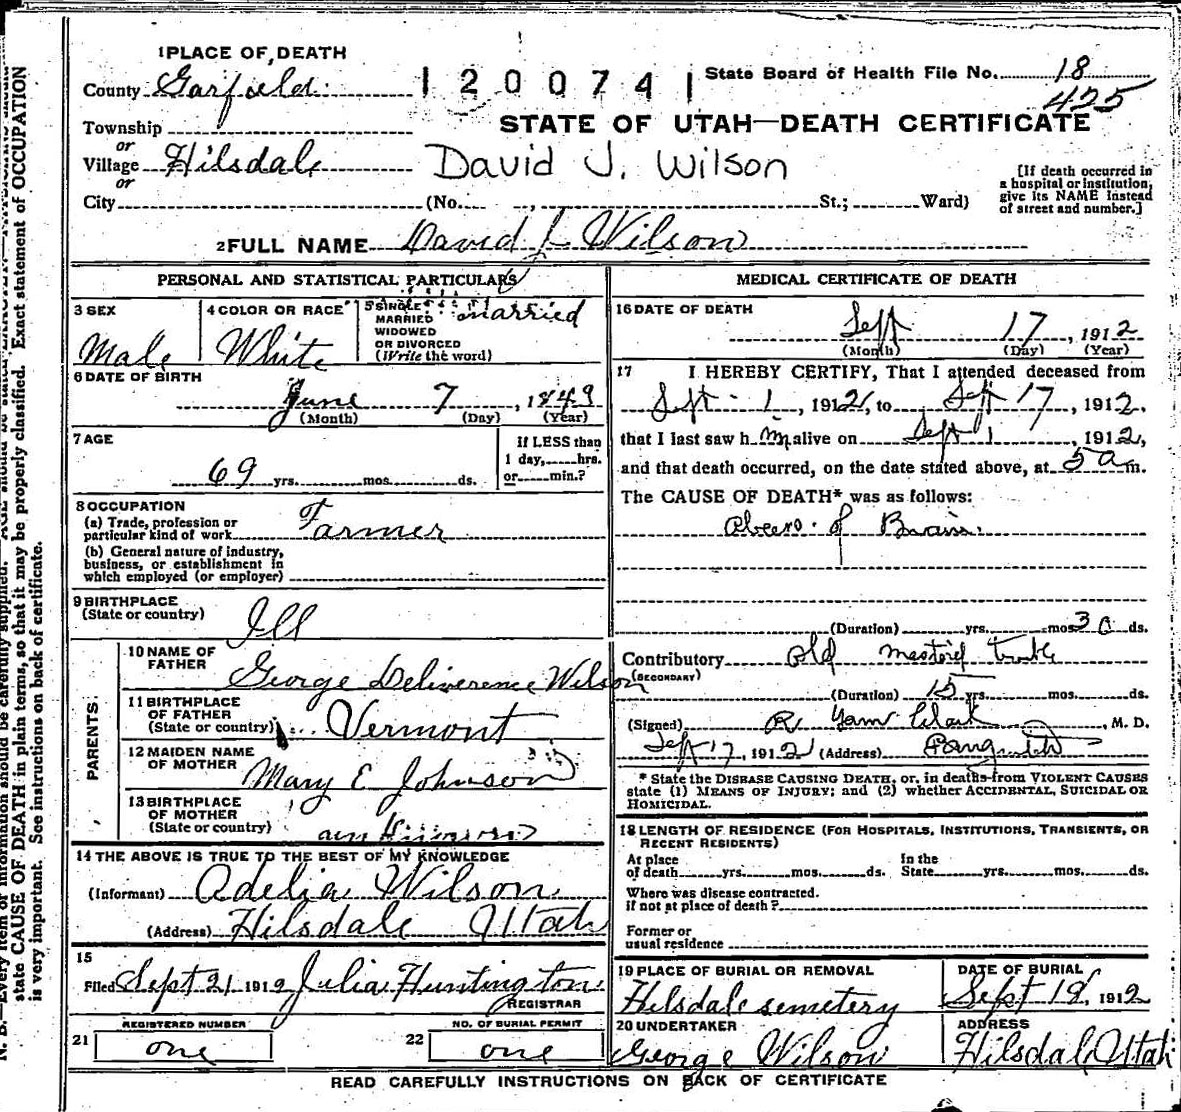 1 PLACE OF DEATH
County Garfield
1200741
State Board of Health File No. 18
425
Township
or
Village Hilsdale
or
City (No. , St.; Ward)
STATE OF UTAH—DEATH CERTIFICATE
David J. Wilson
[If death occurred in a hospital or institution, give its NAME instead of street and number.]
2 FULL NAME David J Wilson
PERSONAL AND STATISTICAL PARTICULARS
3 SEX
Male
4 COLOR OR RACE
White
5 SINGLE
MARRIED
WIDOWED
OR DIVORCED
(Write the word)
married
6 DATE OF BIRTH
June 7, 1843
(Month) (Day) (Year)
7 AGE
69 yrs. mos. ds.
If LESS than
1 day, hrs.
or min.?
8 OCCUPATION
(a) Trade, profession or
particular kind of work Farmer
(b) General nature of industry,
business, or establishment in
which employed (or employer)
9 BIRTHPLACE
(State or country)
Ill
PARENTS.
10 NAME OF
FATHER
George Deliverence Wilson
11 BIRTHPLACE
OF FATHER
(State or country)
Vermont
12 MAIDEN NAME
OF MOTHER
Mary E Johnson
13 BIRTHPLACE
OF MOTHER
(State or country)
14 THE ABOVE IS TRUE TO THE BEST OF MY KNOWLEDGE
(Informant) Adelia Wilson
(Address) Hilsdale Utah
15
Filed Sept 21 1912 Julia Huntington
REGISTRAR
REGISTERED NUMBER
21 one
NO. OF BURIAL PERMIT
22 one
MEDICAL CERTIFICATE OF DEATH
16 DATE OF DEATH
Sept 17, 1912
(Month) (Day) (Year)
17 I HEREBY CERTIFY, That I attended deceased from
Sept 1, 1912, to Sept 17, 1912,
that I last saw him alive on Sept 1, 1912,
and that death occurred, on the date stated above, at 5 a m.
The CAUSE OF DEATH* was as follows:
Abcess of Brain
(Duration) yrs. mos. 30 ds.
Contributory old mastoid
(SECONDARY)
(Duration) 15 yrs. mos. ds.
(Signed) R Clark, M. D.
Sept 17, 1912 (Address) Panguitch
* State the DISEASE CAUSING DEATH, or, in deaths from VIOLENT CAUSES
state (1) MEANS OF INJURY; and (2) whether ACCIDENTAL, SUICIDAL OR
HOMICIDAL.
18 LENGTH OF RESIDENCE (FOR HOSPITALS, INSTITUTIONS, TRANSIENTS, OR
RECENT RESIDENTS)
At place
of death yrs. mos. ds.
In the
State yrs. mos. ds.
Where was disease contracted.
if not at place of death?
Former or
usual residence
19 PLACE OF BURIAL OR REMOVAL
Hilsdale semetery
DATE OF BURIAL
Sept 18, 1912
20 UNDERTAKER
George Wilson
ADDRESS
Hilsdale Utah
READ CAREFULLY INSTRUCTIONS ON BACK OF CERTIFICATE
N. B.—Every item of information should be carefully supplied.
state CAUSE OF DEATH in plain terms, so that it may be properly classified. Exact statement of OCCUPATION
is very important. See instructions on back of certificate.